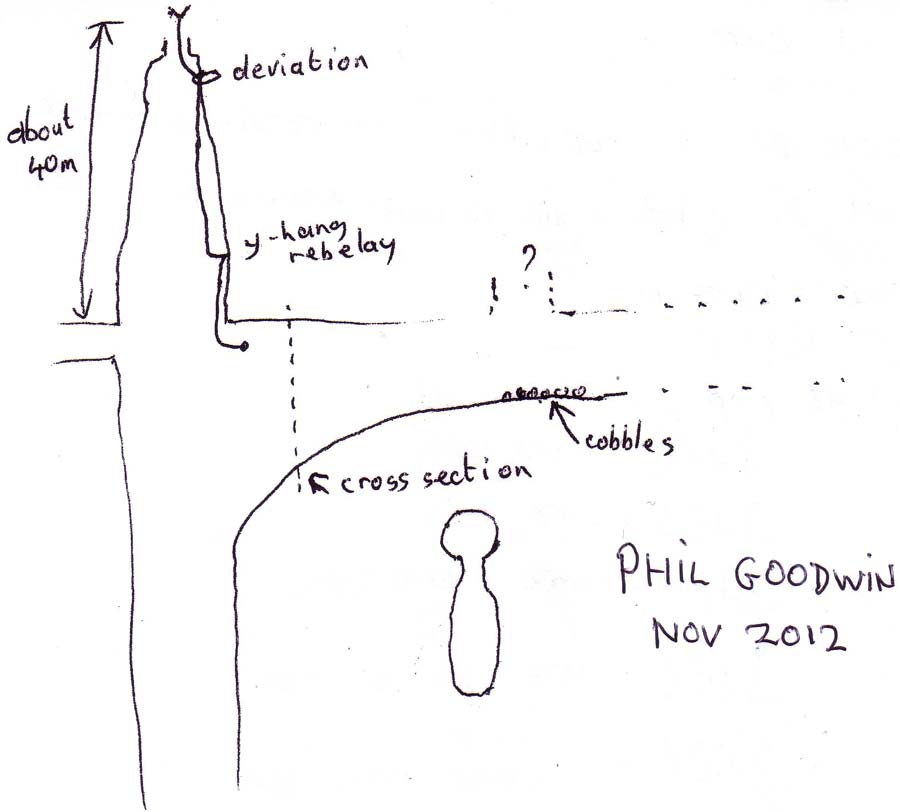 deviation
about
40m
y-hang
rebelay
?
cobbles
cross section
PHIL GOODWIN
NOV 2012